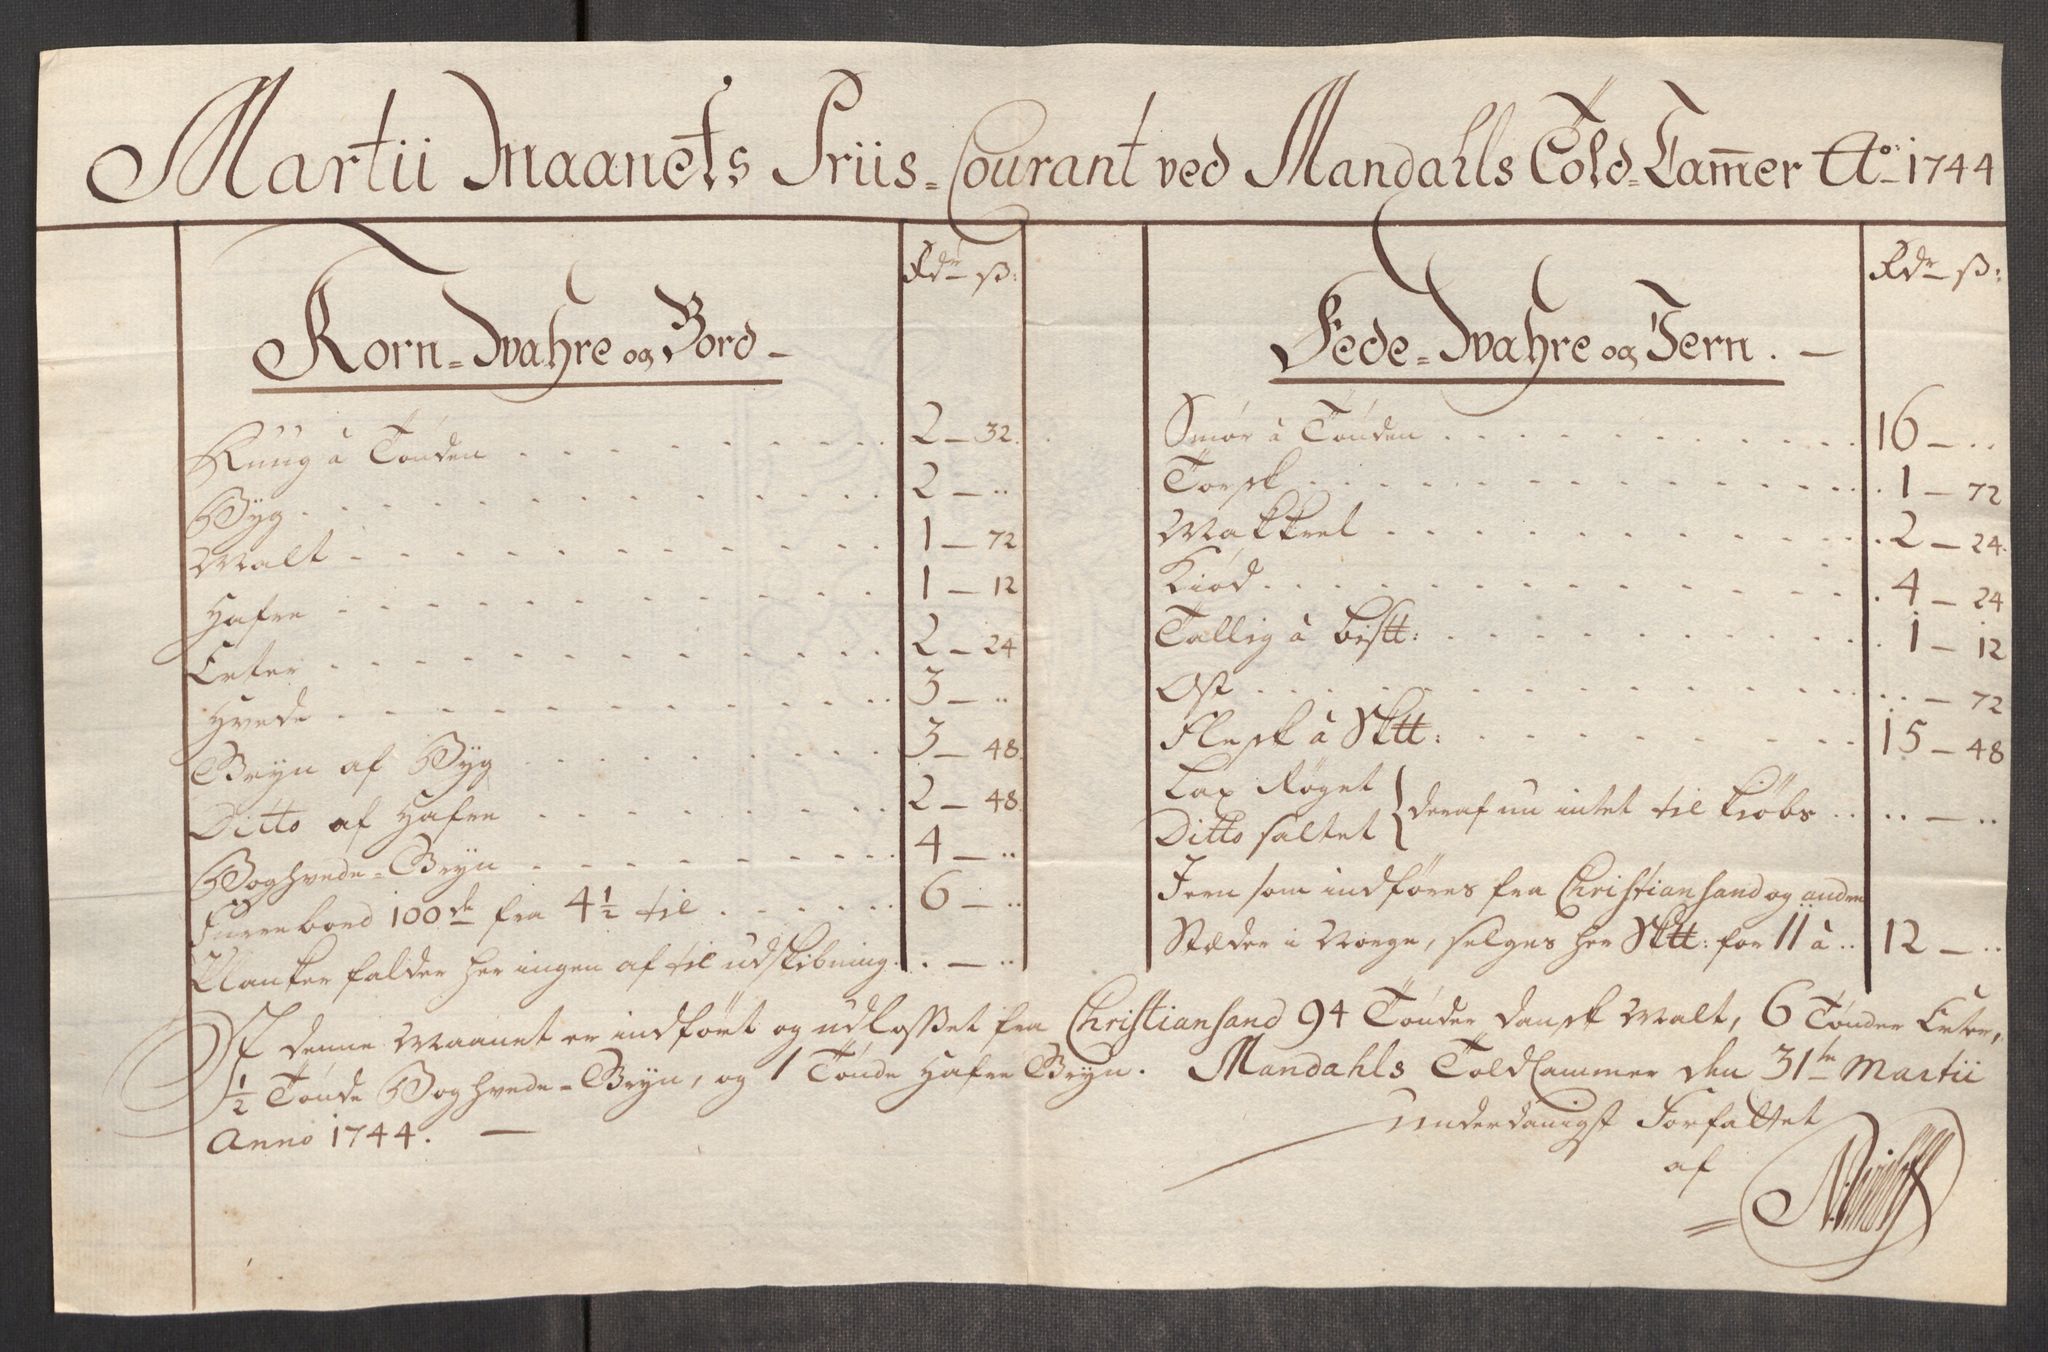 Martii Maanets Priis-Courant ved Mandahls Told-Cam̅er Ao: 1744
Rdr ß:
Korn-Wahre og Bord
Ruug à Tønden 2 - 32
Byg 2 - ..
Malt 1 - 72
Hafre 1 - 12
Erter 2 - 24
Hvede 3 - ..
Gryn af Byg 3 - 48
Ditto af Hafre 2 - 48
Boghvede-Gryn 4 - ..
Furrebord 100de fra 4½ til 6 - ..
Plancker falder her ingen af til udskibning .. - ..
Rdr ß:
Fede-Wahre og Jern.
Smør à Tønden 16 - ..
Torsk 1 - 72
Makkrel 2 - 24
Kiød 4 - 24
Tallig à bistt: 1 - 12
Ost .. - 72
Flesk à Sktt: 15 - 48
Lax Røget
Ditto saltet } deraf nu intet til kiøbs .. - ..
Jern som indføres fra Christiansand og andre
Stæder i Norge, selges her Sktt: for 11 à 12 - ..
I denne Maanet er indført og udlosset fra Christiansand 94 Tønder dansk Malt, 6 Tønder Erter,
½ Tønde Boghvede-Gryn, og 1 Tønde Hafre Gryn. Mandahls ToldCammer den 31te Martii
Anno 1744.
Underdanigst Forfattet
af